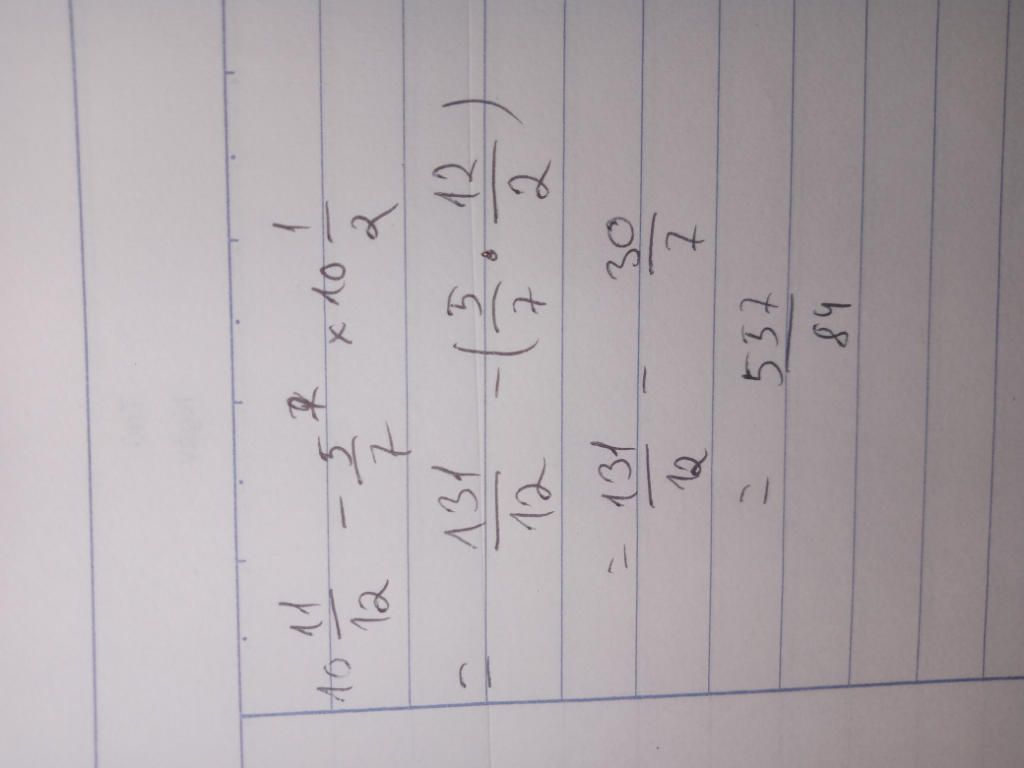 10 11/12 - 5/7 x 10 1/2
= 131/12 - (5/7 · 12/2)
= 131/12 - 30/7
= 537/84